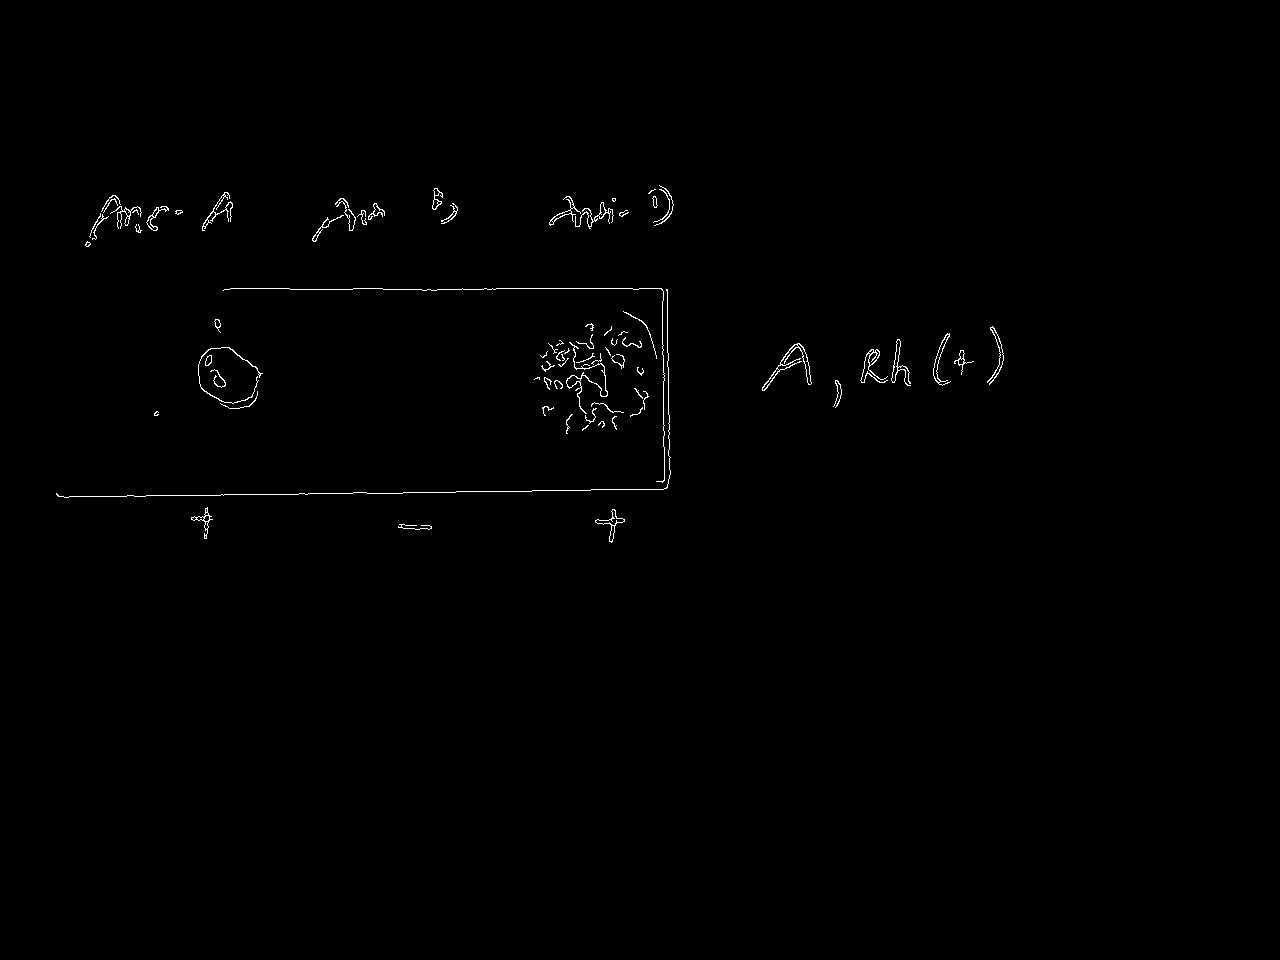 Anti-A Anti B Anti-D
A, Rh (+)
+ - +